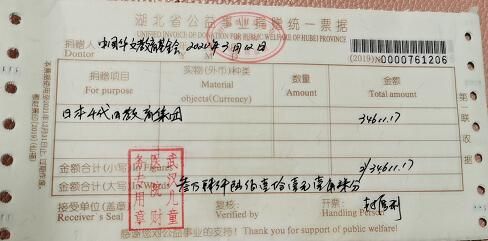 湖北省公益事业捐赠统一票据
UNIFIED INVOICE OF DONATION FOR PUBLIC WELFARE OF HUBEI PROVINCE
捐赠人 中国华文教育基金会 2020年3月12日
Dontor
(2019) No 0000761206
捐赠项目 实物(外币)种类 数量 金额
For purpose Material objects(Currency) Amount Total amount
日本千代田教育集团 34611.17
金额合计(小写)In Figures ¥34611.17
金额合计(大写)In Words 叁万肆仟陆佰壹拾壹元壹角柒分
接受单位(盖章) 复核: 开票:
Receiver's Seal Verified by Handling Person
感谢您对公益事业的支持! Thank you for support of public welfare!
武汉儿童
医院财
务专用章
第一联 收据